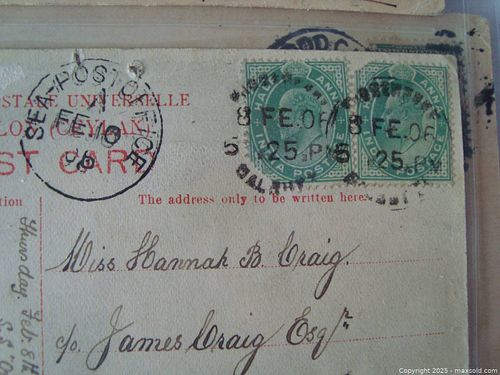 SEA-POST OFFICE
A
FE 10
06
HALF ANNA
INDIA POSTAGE
8 FE. 06
5 .25.P
HALF ANNA
INDIA POSTAGE
8 FE. 06
5 .25.P
STALE UNIVERSELLE
LON (CEYLAN)
ST CARD
tion
The address only to be written here.
Miss Hannah B. Craig.
c/o. James Craig Esqr
Thursday. Feb. 8th
Copyright 2025 - maxsold.com